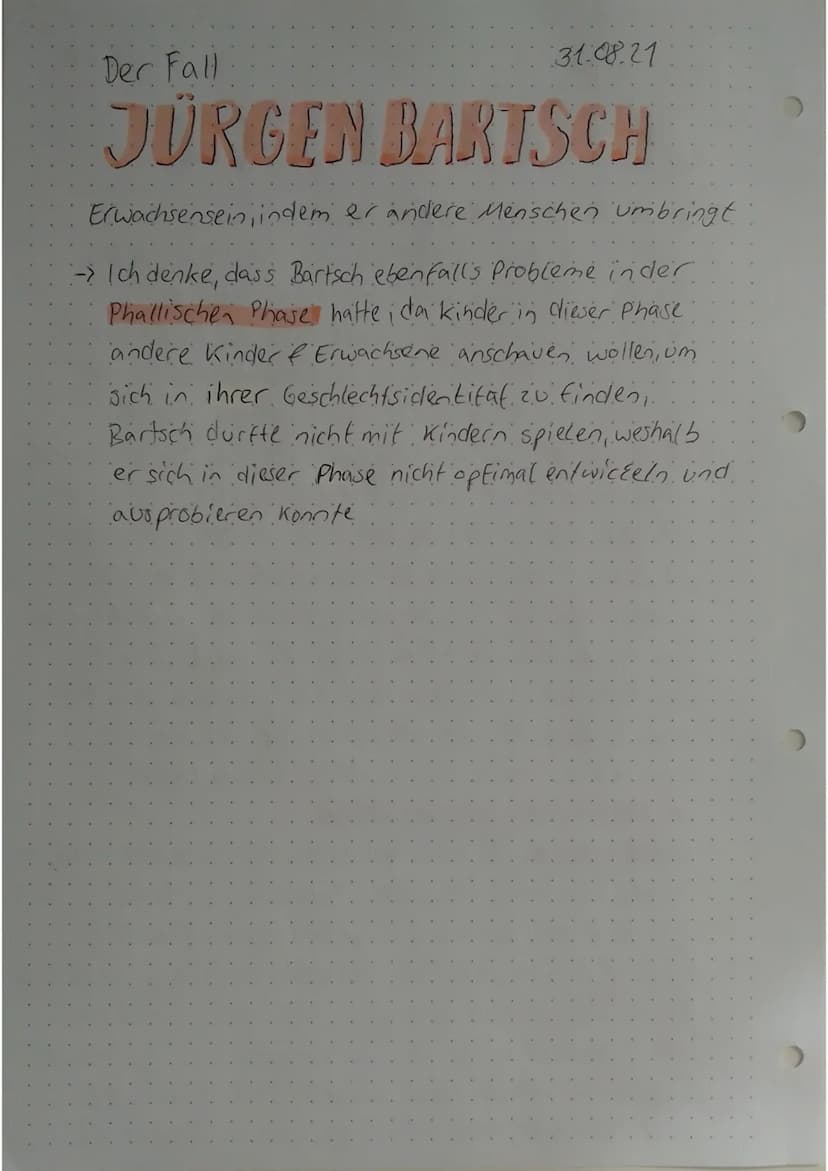 Der Fall 31.08.21
JÜRGEN BARTSCH
Erwachsensein, indem er andere Menschen umbringt
-> Ich denke, dass Bartsch ebenfalls Probleme in der
Phallischen Phase hatte, da Kinder in dieser Phase
andere Kinder & Erwachsene anschauen wollen, um
sich in ihrer Geschlechtsidentität zu finden,
Bartsch durfte nicht mit Kindern spielen, weshalb
er sich in dieser Phase nicht optimal entwickeln und
ausprobieren konnte